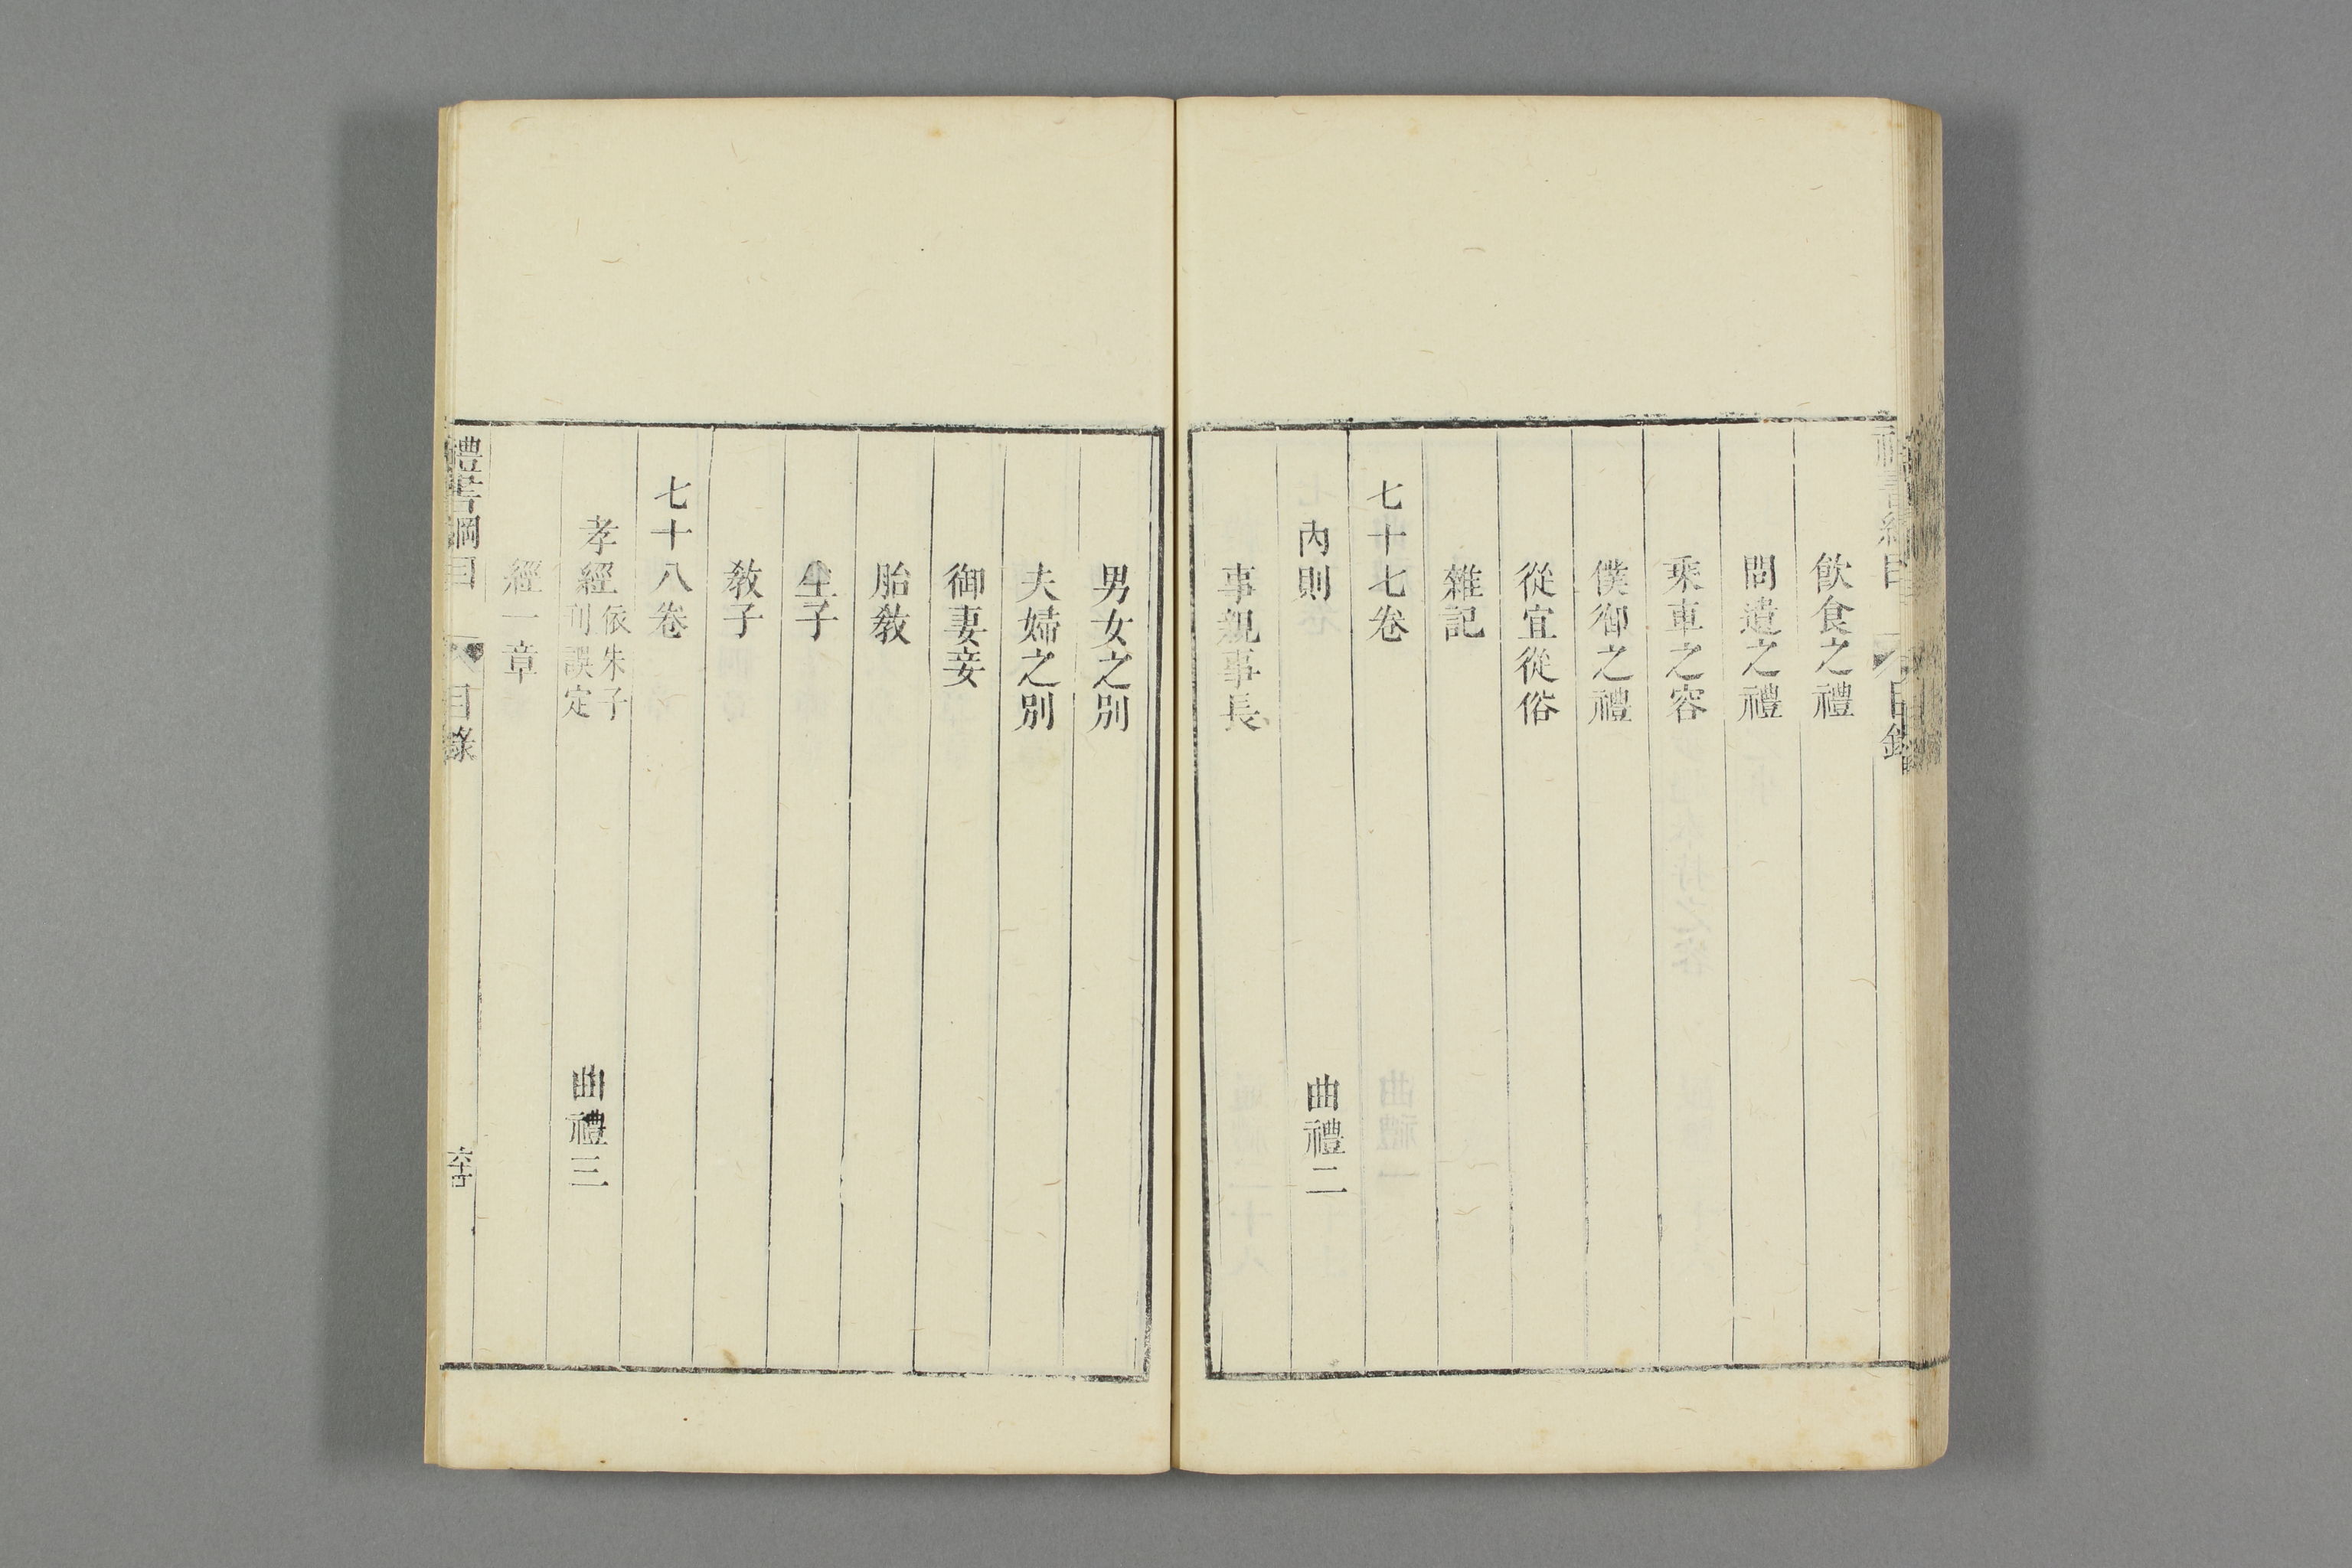 飲食之禮
問遺之禮
乘車之容
僕御之禮
從宜從俗
雜記
七十七卷
內則 曲禮二
事親事長
男女之別
夫婦之別
御妻妾
胎教
生子
教子
七十八卷
孝經 依朱子刊誤定 曲禮三
經一章
禮書綱目 目錄